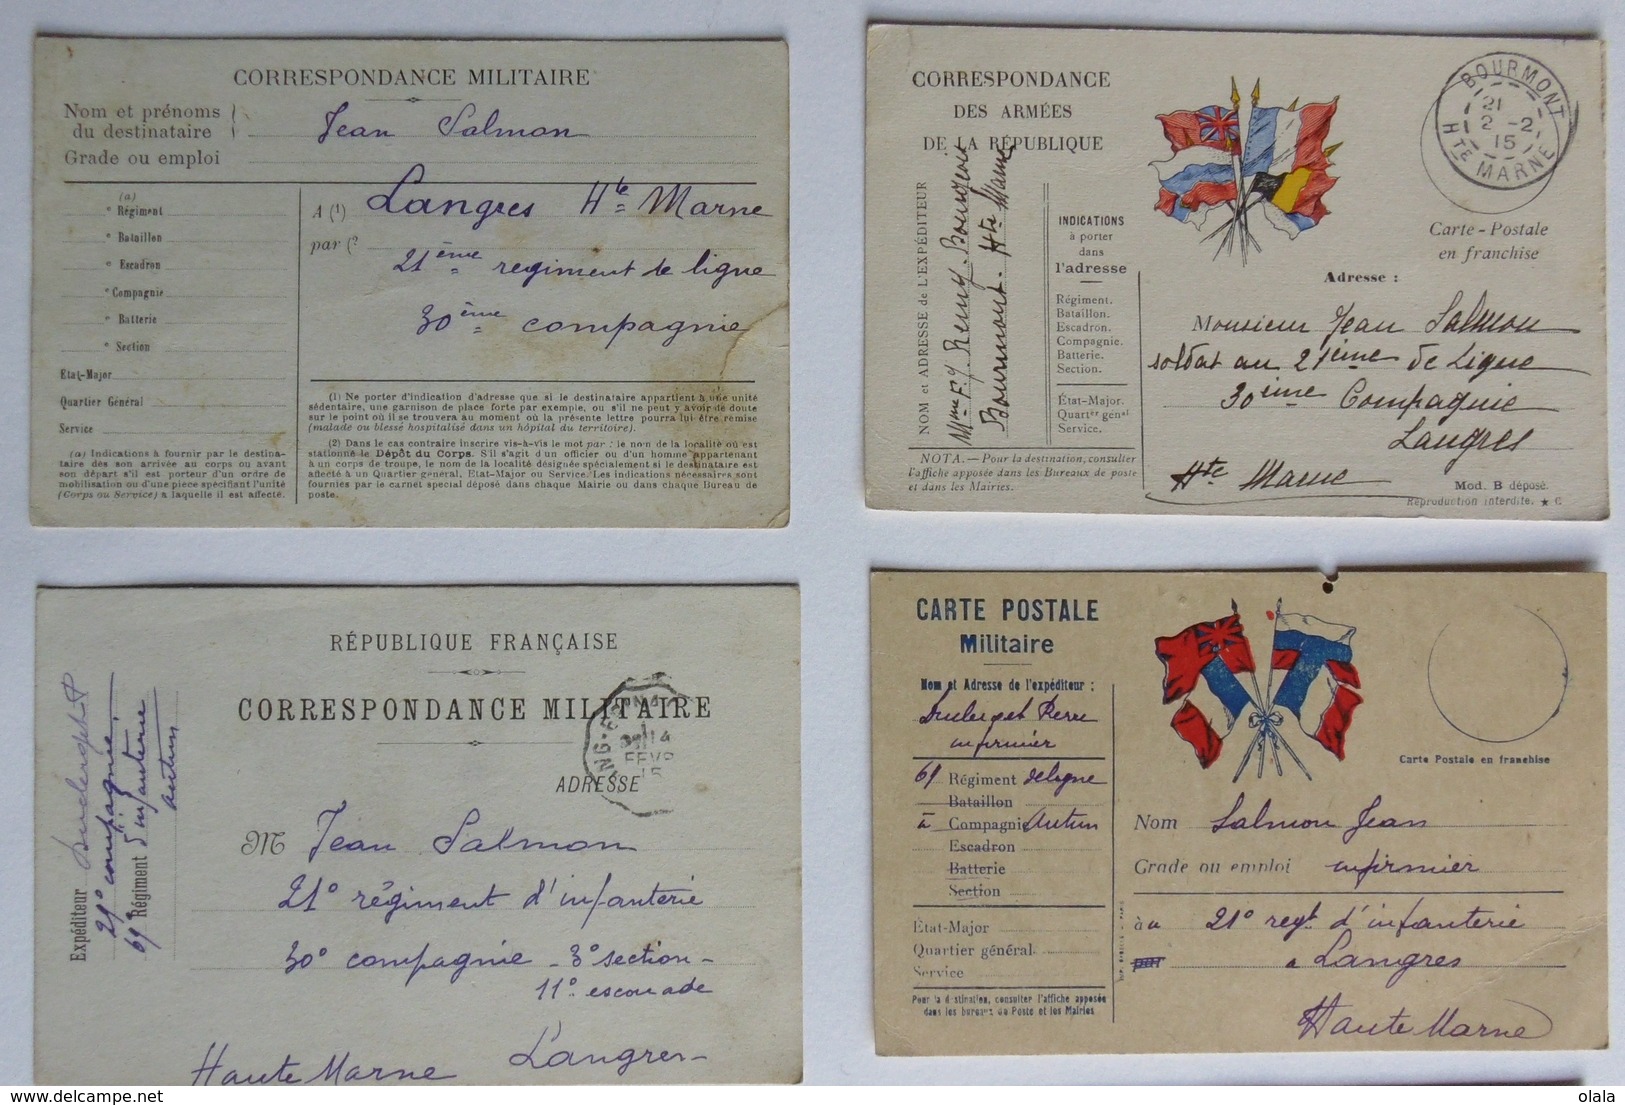 CORRESPONDANCE MILITAIRE
Nom et prénoms
du destinataire
Grade ou emploi
Jean Salmon
(a)
° Régiment
° Bataillon
° Escadron
° Compagnie
° Batterie
° Section
État-Major
Quartier Général
Service
(a) Indications à fournir par le destina-
taire dès son arrivée au corps ou avant
son départ s'il est porteur d'un ordre de
mobilisation ou d'une pièce spécifiant l'unité
(Corps ou Service) à laquelle il est affecté.
A (1) Langres Hte Marne
par (2 21ème regiment de ligne
30ème compagnie
(1) Ne porter d'indication d'adresse que si le destinataire appartient à une unité
sédentaire, une garnison de place forte par exemple, ou s'il ne peut y avoir de doute
sur le point où il se trouvera au moment où la présente lettre pourra lui être remise
(malade ou blessé hospitalisé dans un hôpital du territoire).
(2) Dans le cas contraire inscrire vis-à-vis le mot par : le nom de la localité où est
stationné le Dépôt du Corps. S'il s'agit d'un officier ou d'un homme appartenant
à un corps de troupe, le nom de la localité désignée spécialement si le destinataire est
affecté à un Quartier general, Etat-Major ou Service. Les indications nécessaires sont
fournies par le carnet special déposé dans chaque Mairie ou dans chaque Bureau de
poste.
CORRESPONDANCE
DES ARMÉES
DE LA RÉPUBLIQUE
NOM et ADRESSE de L'EXPÉDITEUR
Mme Remy-Bourgeois
Bourmont. Hte Marne
INDICATIONS
à porter
dans
l'adresse
Régiment.
Bataillon.
Escadron.
Compagnie.
Batterie.
Section.
État-Major.
Quartier génal
Service.
NOTA. — Pour la destination, consulter
l'affiche apposée dans les Bureaux de poste
et dans les Mairies.
BOURMONT
21
2 -2
15
HTE MARNE
Carte - Postale
en franchise
Adresse :
Monsieur Jean Salmon
soldat au 21ème de Ligne
30ème Compagnie
Langres
Hte Marne
Mod. B déposé.
Reproduction interdite. ★ C
RÉPUBLIQUE FRANÇAISE
CORRESPONDANCE MILITAIRE
14
FEVR
15
ADRESSE
Expéditeur
21° compagnie
69e Régiment d'infanterie
Autun
M Jean Salmon
21° régiment d'infanterie
30° compagnie - 3° section -
11° escouade
Langres -
Haute Marne
CARTE POSTALE
Militaire
Nom et Adresse de l'expéditeur :
infirmier
69 Régiment de ligne
Bataillon
à Compagnie Autun
Escadron
Batterie
Section
État-Major
Quartier général
Service
Pour la destination, consulter l'affiche apposée
dans les bureaux de Poste et les Mairies
Carte Postale en franchise
Nom Salmon Jean
Grade ou emploi infirmier
à au 21° regt. d'infanterie
par a Langres
Haute Marne
delcampe.net
olala